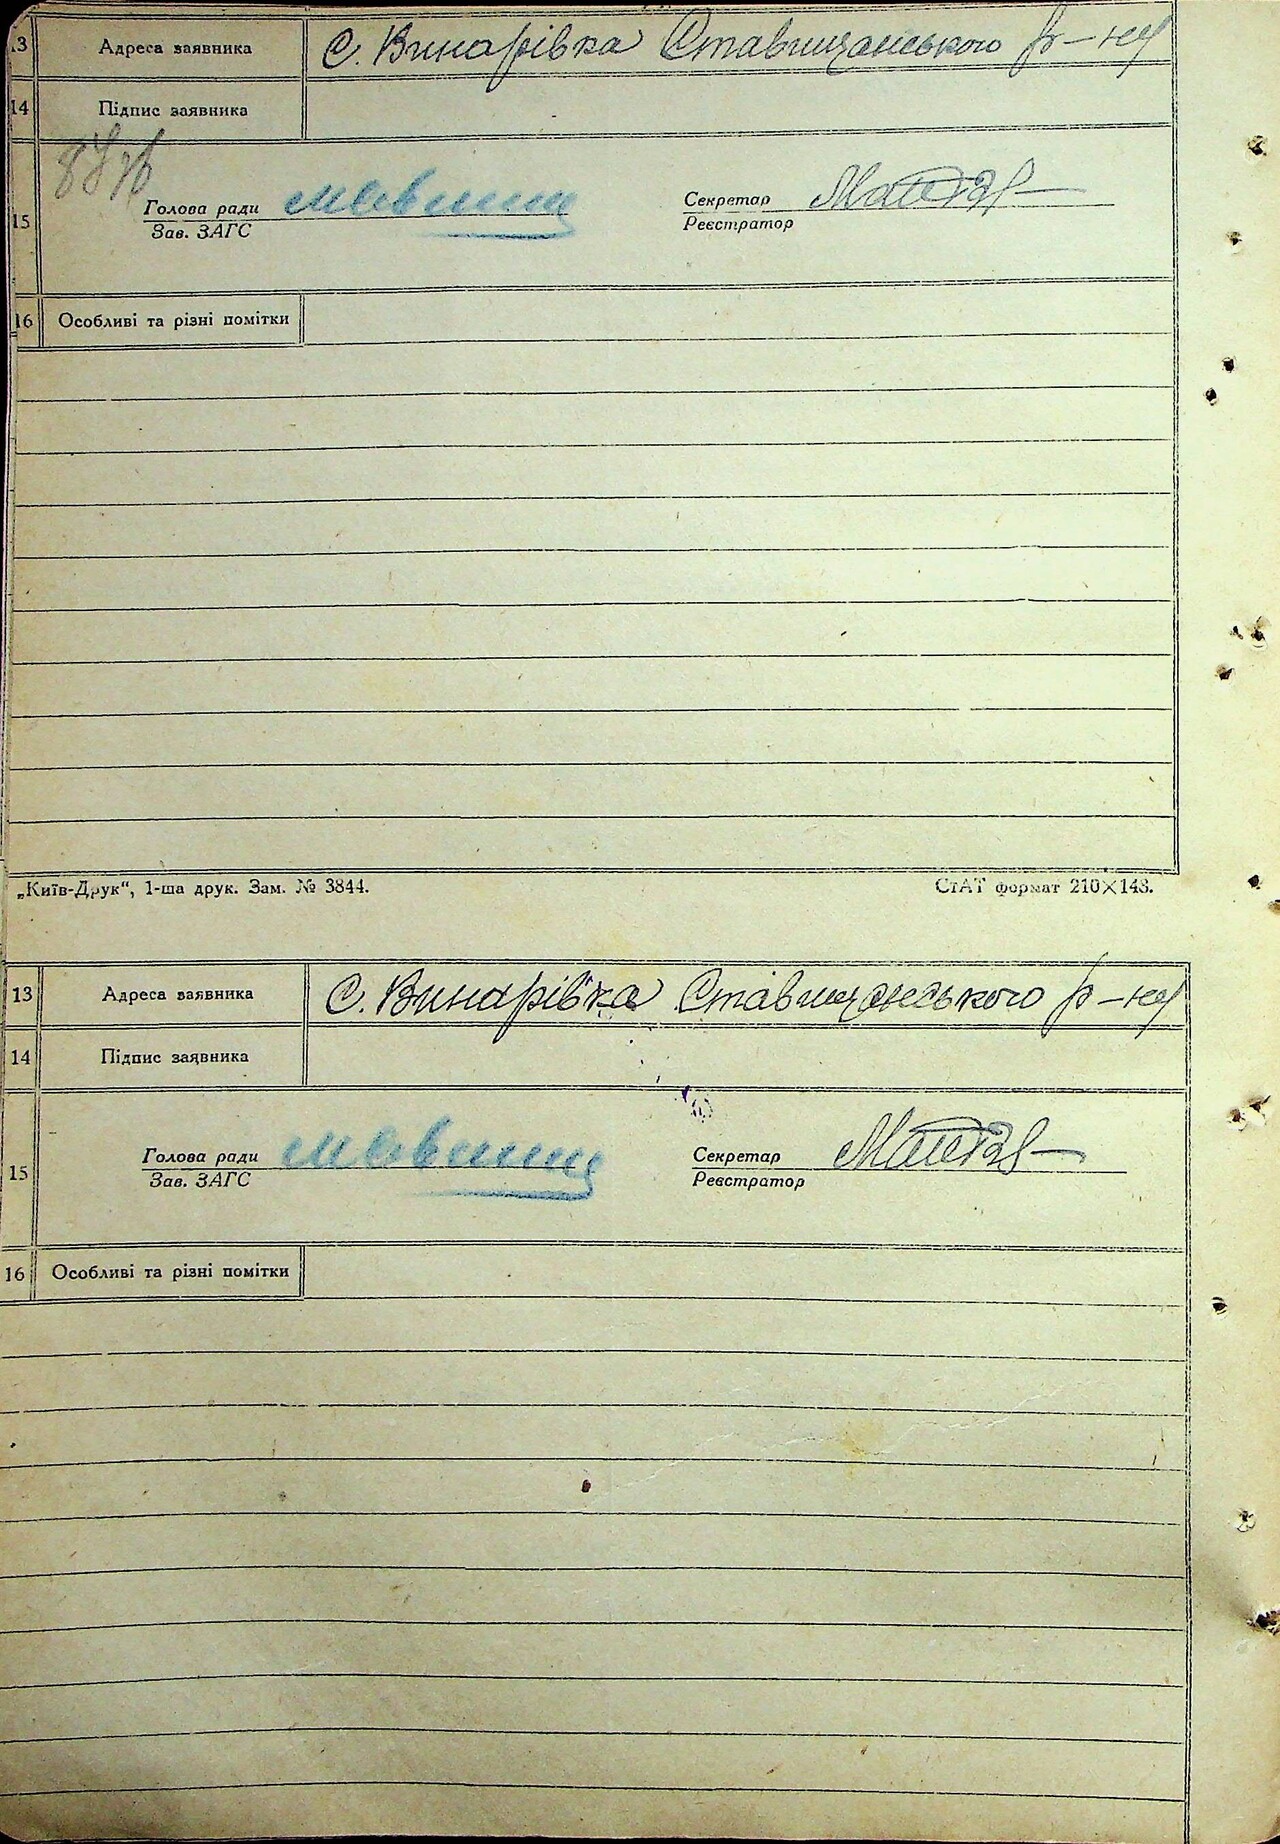 13 Адреса заявника с. Винарівка Ставищанського р-ну
14 Підпис заявника
15 Голова ради Секретар
Зав. ЗАГС Реєстратор
16 Особливі та різні помітки
„Київ-Друк“, 1-ша друк. Зам. № 3844. СтАТ формат 210×148.
13 Адреса заявника с. Винарівка Ставищанського р-ну
14 Підпис заявника
15 Голова ради Секретар
Зав. ЗАГС Реєстратор
16 Особливі та різні помітки